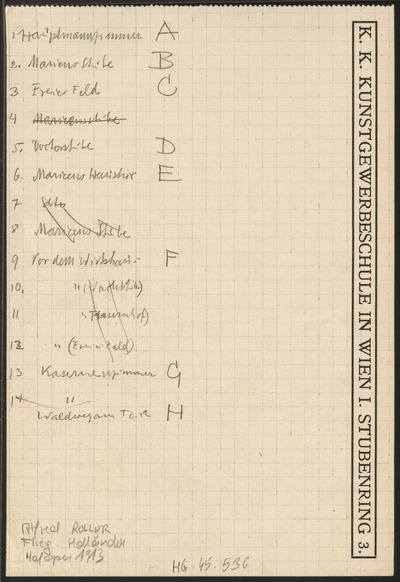 1. Hauptmannzimmer A
2. Mariens Stube B
3 Freies Feld C
4 Mariensstube
5. Doctorstube D
6. Mariens Haustür E
7 dto
8 Mariens Stube
9 Vor dem Wirtshaus F
10. " (Wachtstube)
11 " (Kasernhof)
12 " (Freies Feld)
13 Kasernenzimmer G
14 "
Waldweg am Teich H
K. K. KUNSTGEWERBESCHULE IN WIEN I. STUBENRING 3.
Alfred ROLLER
Flieg. Holländer
Hofoper 1913
HG 45.536